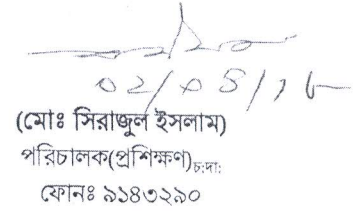 (মোঃ সিরাজুল ইসলাম)
পরিচালক(প্রশিক্ষণ)চ:দা:
ফোনঃ ৯১৪৩২৯০